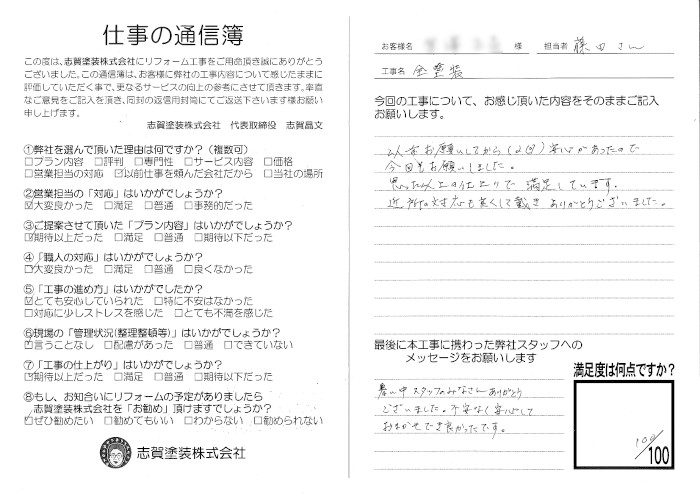 仕事の通信簿
この度は、志賀塗装株式会社にリフォーム工事をご用命頂き誠にありがとう
ございました。この通信簿は、お客様に弊社の工事内容について感じたままに
評価していただく事で、更なるサービスの向上の参考にさせて頂きます。率直
なご意見をご記入を頂き、同封の返信用封筒にてご返送下さいます様お願い
申し上げます。
志賀塗装株式会社　代表取締役　志賀晶文
①弊社を選んで頂いた理由は何ですか？（複数可）
□プラン内容　□評判　□専門性　□サービス内容　□価格
□営業担当の対応　☑以前仕事を頼んだ会社だから　□当社の場所
②営業担当の「対応」はいかがでしょうか？
☑大変良かった　□満足　□普通　□事務的だった
③ご提案させて頂いた「プラン内容」はいかがでしょうか？
☑期待以上だった　□満足　□普通　□期待以下だった
④「職人の対応」はいかがでしょうか？
☑大変良かった　□満足　□普通　□良くなかった
⑤「工事の進め方」はいかがでしたか？
☑とても安心していられた　□特に不安はなかった
□対応に少しストレスを感じた　□とても不満を感じた
⑥現場の「管理状況(整理整頓等)」はいかがでしょうか？
☑言うことなし　□配慮があった　□普通　□できていない
⑦「工事の仕上がり」はいかがでしょうか？
☑期待以上だった　□満足　□普通　□期待以下だった
⑧もし、お知合いにリフォームの予定がありましたら
志賀塗装株式会社を「お勧め」頂けますでしょうか？
☑ぜひ勧めたい　□勧めてもいい　□わからない　□勧められない
志賀塗装株式会社
お客様名　様　担当者　藤田さん
工事名　全塗装
今回の工事について、お感じ頂いた内容をそのままご記入
お願いします。
以前お願いしてから(2回)安心があったので
今回もお願いしました。
思った以上の仕上りで 満足しています。
近所の対応も良くして戴き ありがとうございました。
最後に本工事に携わった弊社スタッフへの
メッセージをお願いします
暑い中スタッフのみなさんありがとう
ございました。不安なく安心して
おまかせでき良かったです。
満足度は何点ですか？
100
/100